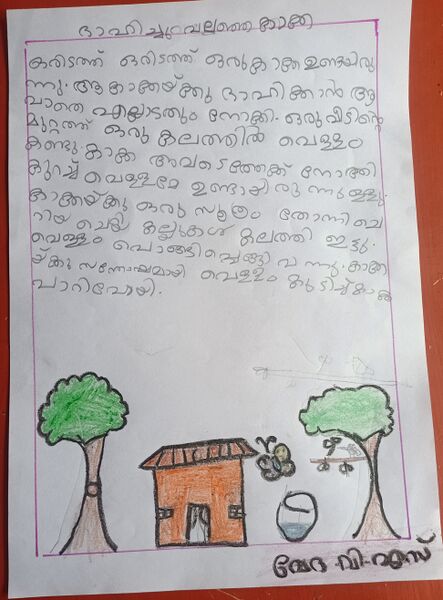 ദാഹിച്ചുവലഞ്ഞ കാക്ക
ഒരിടത്ത് ഒരിടത്ത് ഒരു കാക്ക ഉണ്ടായിരു
ന്നു. ആ കാക്കയ്ക്കു ദാഹിക്കാൻ ആ
വാതെ എല്ലാടത്തും നോക്കി. ഒരു വീടിന്റെ
മുറ്റത്ത് ഒരു കലത്തിൽ വെള്ളം
കണ്ടു. കാക്ക അവടെത്തേക്ക് നോത്തി
കുറച്ച് വെള്ളമേ ഉണ്ടായിരുന്നുള്ളു.
കാക്കയ്ക്കു ഒരു സൂത്രം തോന്നി ചെ
റിയ ചെറിയ കല്ലുകൾ കലത്തി ഇട്ടു.
വെള്ളം പൊങ്ങി പൊങ്ങി വന്നു. കാക്ക
യ്ക്കു സന്തോഷമായി വെള്ളം കുടിച്ച് കാക്ക
പാറിപോയി.
വേദ. വി. എസ്